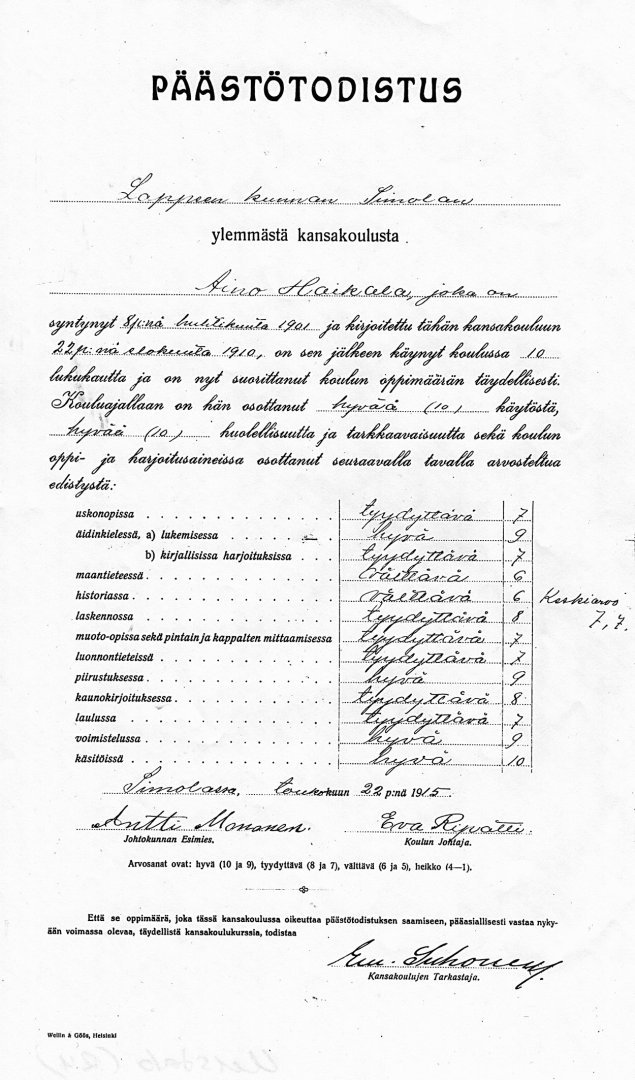 PÄÄSTÖTODISTUS
Lappeen kunnan Simolan
ylemmästä kansakoulusta
Aino Haikala, joka on
syntynyt 8 p:nä huhtikuuta 1901 ja kirjoitettu tähän kansakouluun
22 p:nä elokuuta 1910, on sen jälkeen käynyt koulussa 10
lukukautta ja on nyt suorittanut koulun oppimäärän täydellisesti.
Kouluajallaan on hän osottanut hyvää (10) käytöstä,
hyvää (10) huolellisuutta ja tarkkaavaisuutta sekä koulun
oppi- ja harjoitusaineissa osottanut seuraavalla tavalla arvosteltua
edistystä:
uskonopissa tyydyttävä 7
äidinkielessä, a) lukemisessa hyvä 9
b) kirjallisissa harjoituksissa tyydyttävä 7
maantieteessä välttävä 6
historiassa välttävä 6 Keskiarvo
laskennossa tyydyttävä 8 7,7.
muoto-opissa sekä pintain ja kappalten mittaamisessa tyydyttävä 7
luonnontieteissä tyydyttävä 7
piirustuksessa hyvä 9
kaunokirjoituksessa tyydyttävä 8
laulussa tyydyttävä 7
voimistelussa hyvä 9
käsitöissä hyvä 10
Simolassa, toukokuun 22 p:nä 1915.
Antti Mononen. Eva Ripatti.
Johtokunnan Esimies. Koulun Johtaja.
Arvosanat ovat: hyvä (10 ja 9), tyydyttävä (8 ja 7), välttävä (6 ja 5), heikko (4—1).
Että se oppimäärä, joka tässä kansakoulussa oikeuttaa päästötodistuksen saamiseen, pääasiallisesti vastaa nyky-
ään voimassa olevaa, täydellistä kansakoulukurssia, todistaa
Suhonen
Kansakoulujen Tarkastaja.
Weilin & Göös, Helsinki